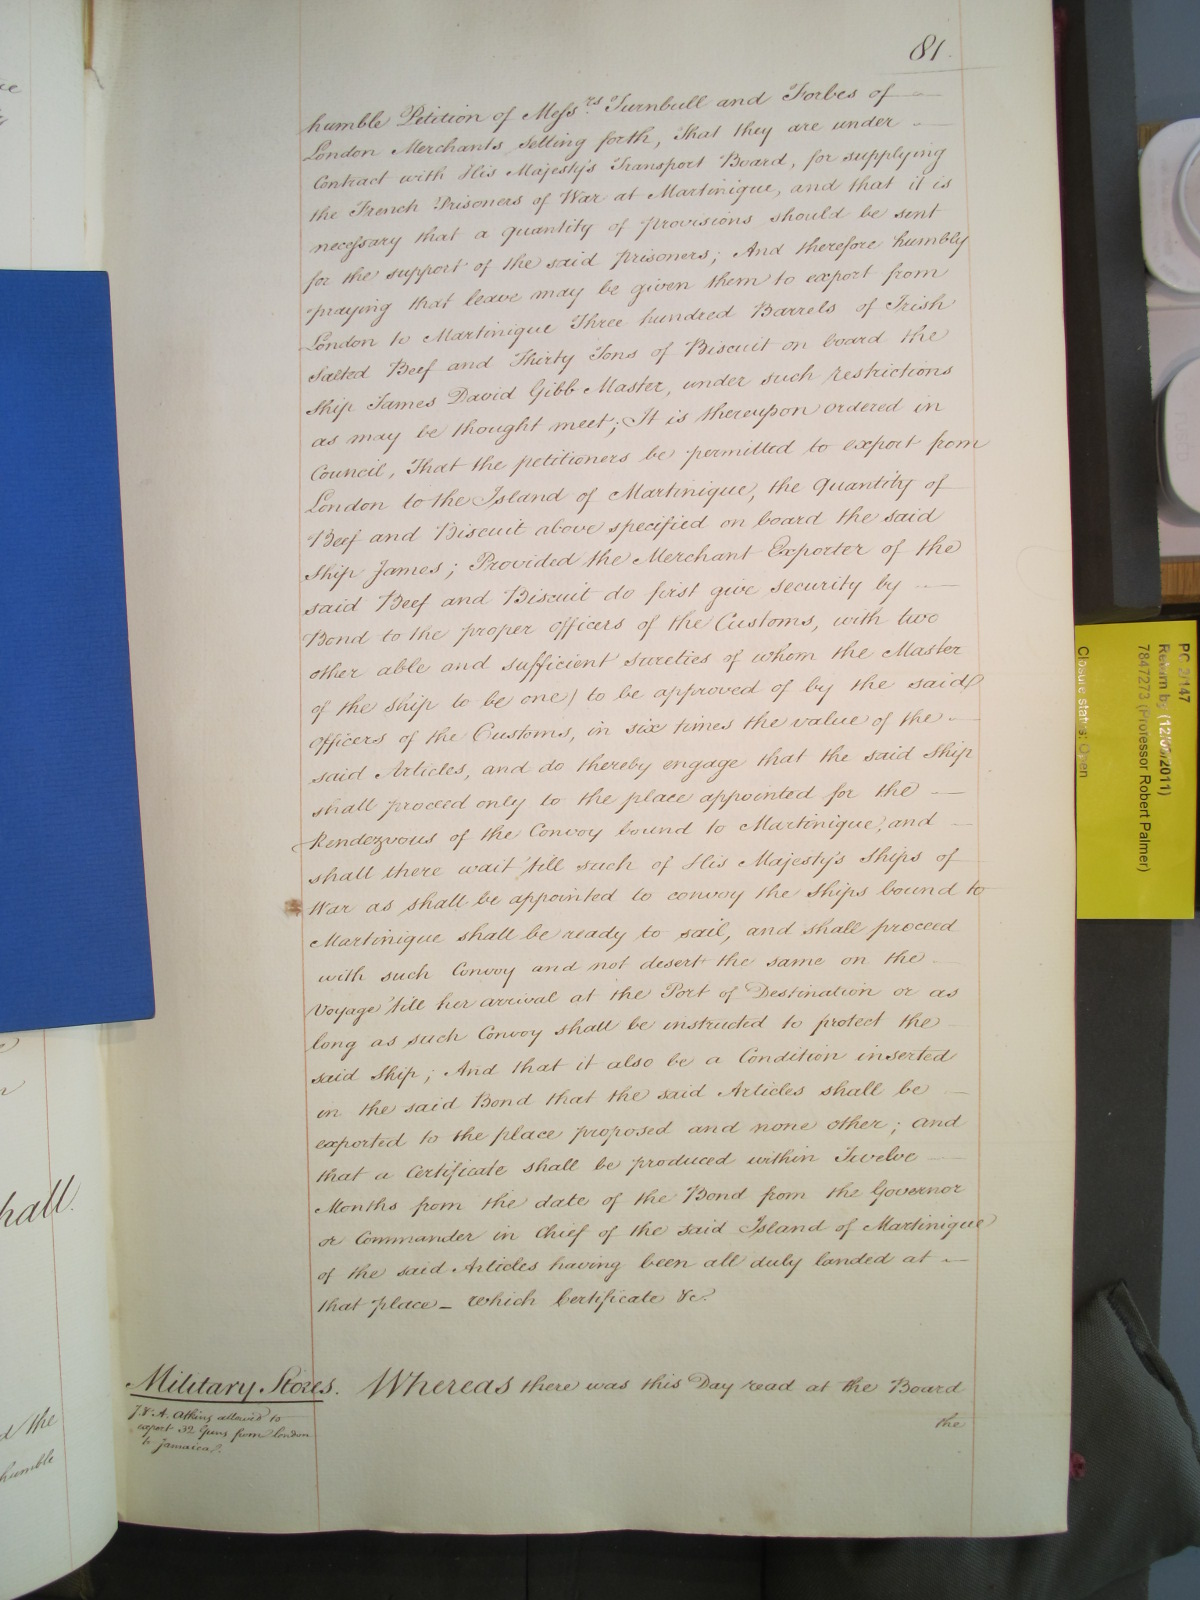 81
humble Petition of Mess.rs Turnbull and Forbes of
London Merchants setting forth, That they are under
Contract with His Majesty's Transport Board, for supplying
the French Prisoners of War at Martinique, and that it is
necessary that a quantity of provisions should be sent
for the support of the said prisoners; And therefore humbly
praying that leave may be given them to export from
London to Martinique Three hundred Barrels of Irish
Salted Beef and Thirty Tons of Biscuit on board the
Ship James David Gibb Master, under such restrictions
as may be thought meet; It is thereupon ordered in
Council, That the petitioners be permitted to export from
London to the Island of Martinique, the quantity of
Beef and Biscuit above specified on board the said
Ship James; Provided the Merchant Exporter of the
said Beef and Biscuit do first give security by
Bond to the proper officers of the Customs, with two
other able and sufficient sureties of whom the Master
of the ship to be one) to be approved of by the said
officers of the Customs, in six times the value of the
said Articles, and do thereby engage that the said Ship
shall proceed only to the place appointed for the
Rendezvous of the Convoy bound to Martinique, and
shall there wait 'till such of His Majesty's Ships of
War as shall be appointed to convoy the Ships bound to
Martinique shall be ready to sail, and shall proceed
with such Convoy and not desert the same on the
Voyage 'till her arrival at the Port of Destination or as
long as such Convoy shall be instructed to protect the
said Ship; And that it also be a Condition inserted
in the said Bond that the said Articles shall be
exported to the place proposed and none other; and
that a Certificate shall be produced within Twelve
Months from the date of the Bond from the Governor
or Commander in Chief of the said Island of Martinique
of the said Articles having been all duly landed at
that place _ which Certificate &c.
Military Stores. Whereas there was this Day read at the Board
the
J. & A. Atkins allowed to
export 32 Guns from London
to Jamaica.
hall.
the
humble
PC 2/147
Return by (12/05/2011)
7847273 (Professor Robert Palmer)
Closure status: Open